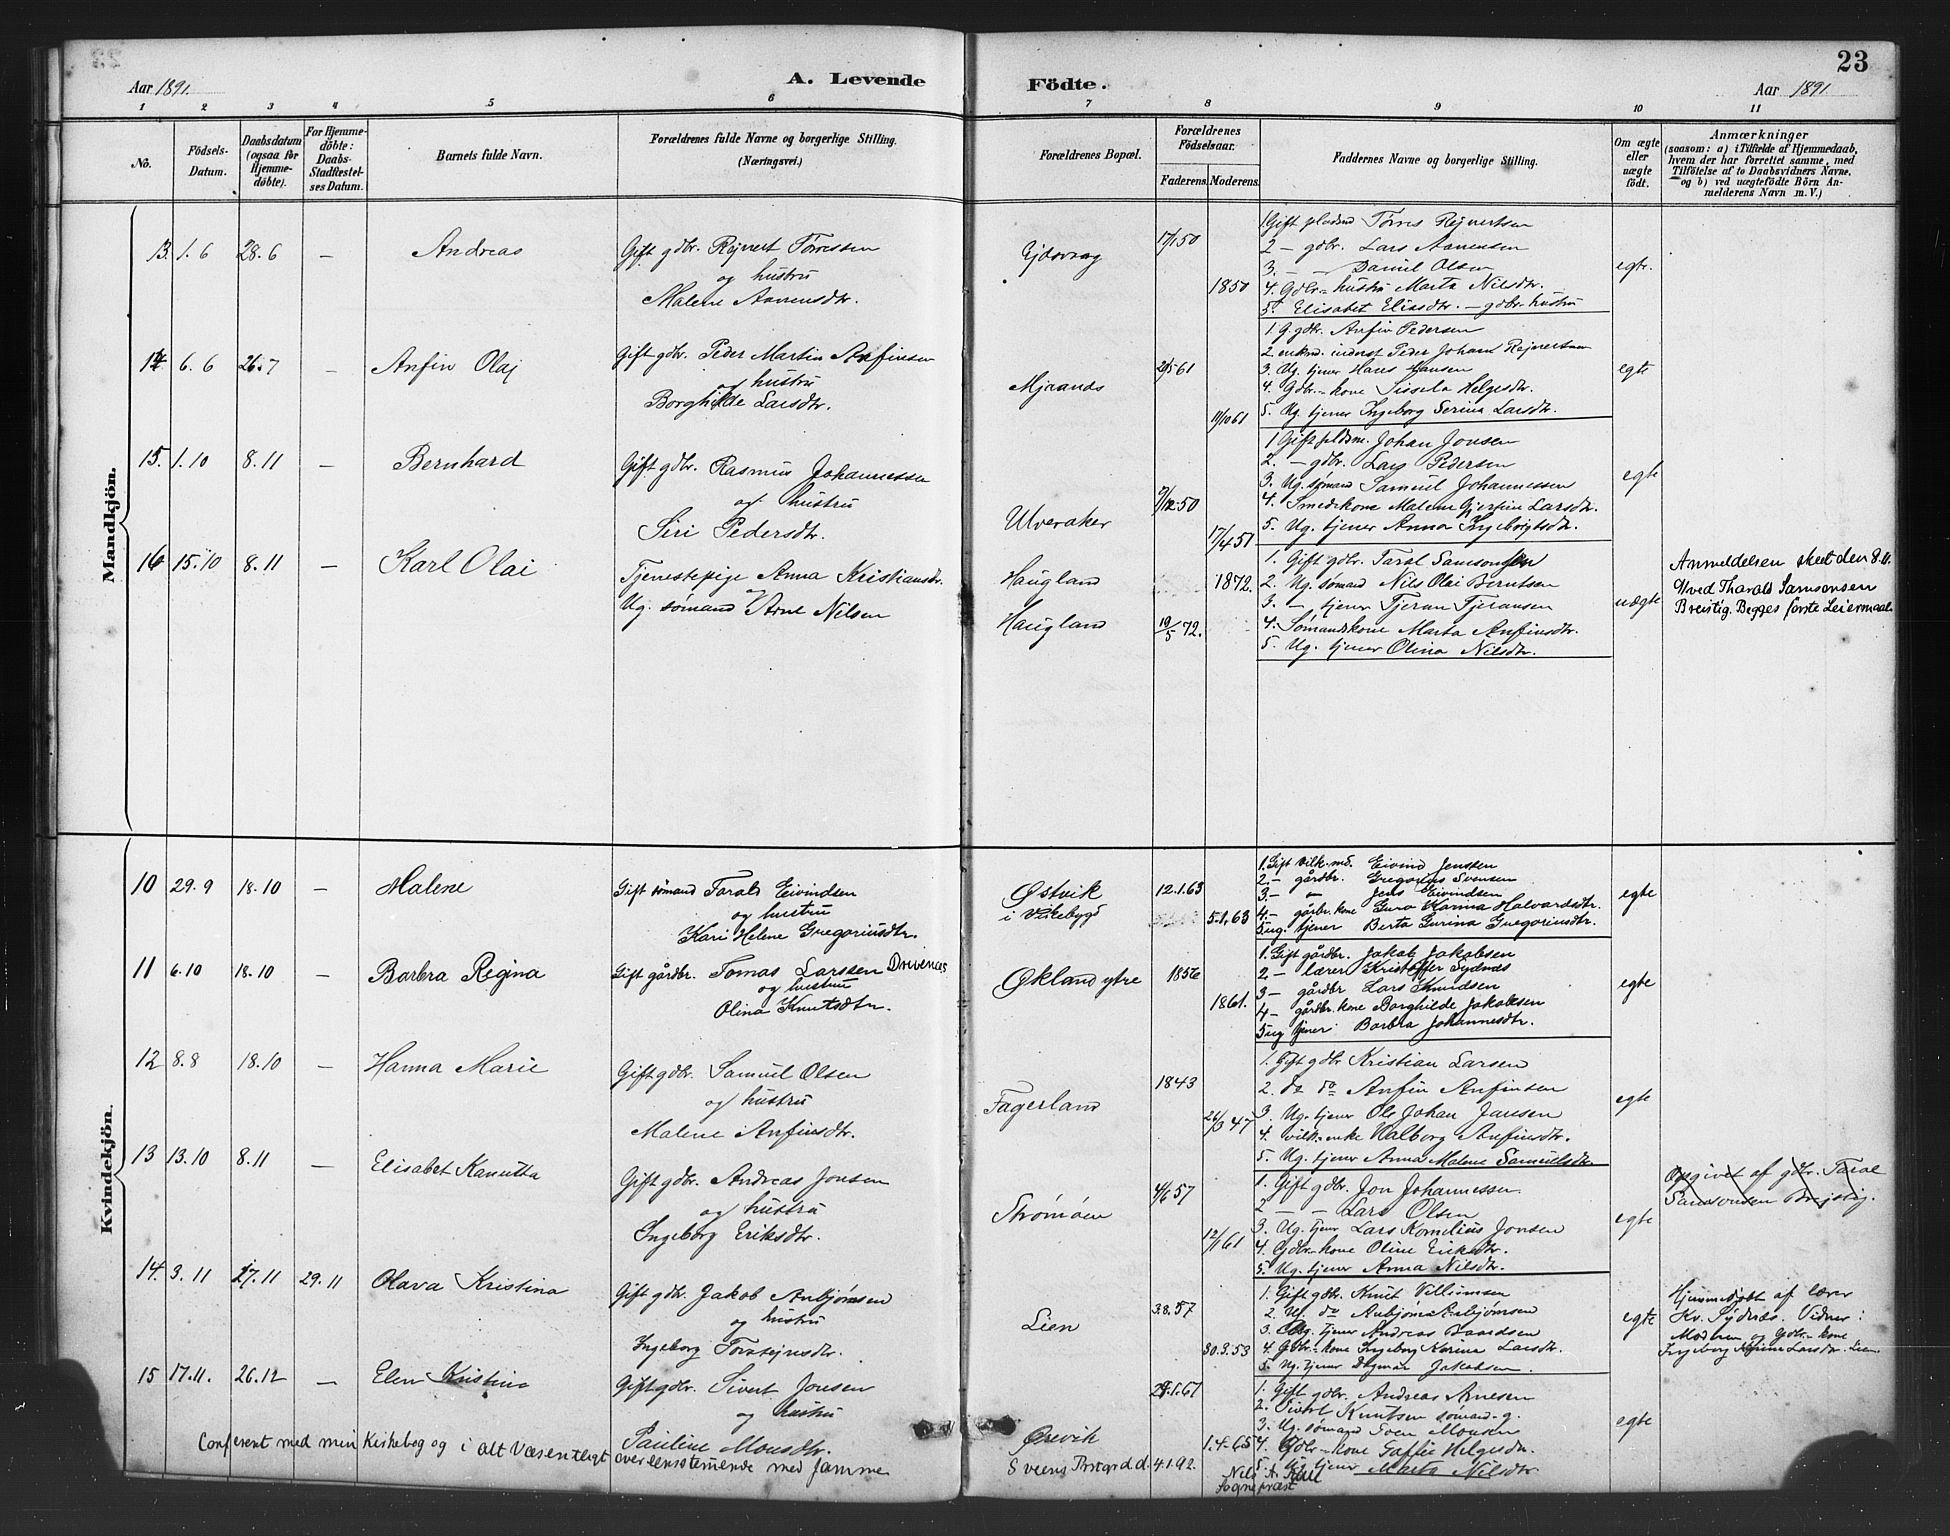 23
Aar 1891.
A. Levende Födte.
Aar 1891
1 2 3 4 5 6 7 8 9 10 11
No.
Födsels-Datum.
Daabsdatum (ogsaa for Hjemme-döbte).
For Hjemme-döbte: Daabs-Stadfæstel-ses Datum.
Barnets fulde Navn.
Forældrenes fulde Navne og borgerlige Stilling.
(Næringsvei.)
Forældrenes Bopæl.
Forældrenes Födselsaar.
Faderens. Moderens.
Faddernes Navne og borgerlige Stilling.
Om ægte eller uægte født.
Anmærkninger
(saasom: a) i Tilfælde af Hjemmedaab,
hvem der har forrettet samme, med
Tilföielse af to Daabsvidners Navne,
og b) ved uægtefödte Börn An-
melderens Navn m. V.)
Mandkjön.
13. 1.6 28.6 — Andreas
Gift gdbr. Rejnert Tørressen
og hustru
Malene Aanensdtr.
17/1 50
1850
1. Gift pladsmd Tørres Rejnertsen
2 — gdbr. Lars Aanensen
3. — — Daniel Olsen
4. Gdbr.- hustru Marta Nilsdtr.
5. Elisabet Eliasdtr. — gdbr. hustru
egte.
14 6.6 26.7 — Anfin Olaj
Gift gdbr. Peder Martin Anfinsen
og hustru
Borghilde Larsdtr.
Mjaanes
61
11/10 61
1. G. gdbr. Anfin Pedersen
2. enkmd. inderst Peder Johan Rejnertsen
3. Ug. tjener Hans Hansen
4. Gdbr.- kone Sissela Helgesdtr.
5. Ug. tjener Ingeborg Serina Larsdtr.
egte
15. 1.10 8.11 — Bernhard
Gift gdbr. Rasmus Johannessen
og hustru
Siri Pedersdtr.
Ulveraker
9/12 50
17/4 51
1 Gift pldsm. Johan Jonsen
2. — gdbr. Lars Pedersen
3. Ug. sømand Samuel Johannessen
4. Smedekone Malene Larsdtr.
5. Ug. tjener Anna Ingebrigtsdtr.
egte
16 15.10 8.11 — Karl Olai
Tjenestepige Anna Kristiansdtr.
og
Ug. sømand Arne Nilsen
Haugland
Haugland
19/5 72.
1872.
1. Gift gdbr. Taral Samsonsen
2. Ug. sømand Nils Olai Berntsen
3. — tjener Tjeran Tjeransen
4. Sømandskone Marta Anfinsdtr.
5. Ug. tjener Olina Nilsdtr.
uægte
Anmeldelsen skeet den 8.11
ved Tharald Samsonsen
Breistig. Begges første Leiermaal.
Kvindekjön.
10 29.9 18.10 — Malene
Gift sømand Tarald Eivindsen
og hustru
Kari Helene Gregoriusdtr.
Østvik
i Vikebygd
12.1.63
5.1.63
1. Gift vilk.md. Eivind Jenssen
2 — gårdbr. Gregorius Svensen
3 — „ Jens Eivindsen
4 — gårdbr. kone Guro Karina Halvardsdtr.
5 ug. tjener Berta Gurina Gregoriusdtr.
egte
11 6.10 18.10 — Barbra Regina
Gift gårdbr. Tomas Larssen Drivenes
og hustru
Olina Knutsdtr.
Økland ytre
1856
1861.
1. Gift gårdbr. Jakob Jakobsen
2 — lærer Kristoffer Sydnæs
3 — gårdbr Lars Knudsen
4 — gårdbr. kone Borghilde Jakobsen
5 ug tjener Barbra Johannesdtr.
egte
12 8.8 18.10 — Hanna Marie
Gift gdbr. Samuel Olsen
og hustru
Malene Anfinsdtr.
Fagerland
1843
26/3 47
1. Gift gdbr Kristian Larsen
2. do do Anfin Anfinsen
3. Ug. tjener Ole Johan Jansen
4. vilk. enke Valborg Anfinsdtr.
5. Ug. tjener Anna Malene Samuelsdtr.
egte
13 13.10 8.11 — Elisabet Kanutta
Gift gdbr. Andreas Jonsen
og hustru
Ingeborg Eriksdtr.
Strømøen
4/6 57
12/1 61
1. Gift gdbr. Jon Johannessen
2 — — Lars Olsen
3. Ug. tjener Lars Kornelius Jonsen
4. Gdbr. kone Oline Eriksdtr.
5. Ug. tjener Anna Nilsdtr.
egte
Opgivet af gdbr. Taral
Samsonsen Brejstig.
14. 3.11 27.11 29.11 Olava Kristina
Gift gdbr. Jakob Anbjørnsen
og hustru
Ingeborg Torstejnsdtr.
Lien
3.8.57
30.3.53
1. Gift gdbr. Knut Villumsen
2. Ug. do Anbjørn Anbjørnsen
3. Ug. tjener Andreas Baardsen
4. Gdbr.- kone Ingeborg Karina Larsdtr.
5. Ug. tjener Dagmar Jakobsen.
egte
Hjemmedøbt af lærer
Kr. Sydnæs. Vidner:
Moderen og Gdbr.- kone
Ingeborg Larsdtr. Lien.
15 17.11. 26.12 — Elen Kristine
Gift gdbr. Sivert Jonsen
og hustru
Pauline Monsdtr.
Ørevik
.1.61
1.4.65
1. Gift gdbr. Andreas Arnesen
2. Sivert Knutsen sømand. g.
3. Ug. sømand Sven Monsen
4. Gdbr.- kone Helgesdtr.
5. Ug. tjener Marta Nilsdtr.
egte
Conferent med min Kirkebog og i alt Væsentligt overensstemende med samme
Sveens Prstegrd d. 4.1.92.
Nils A.
sognepræst